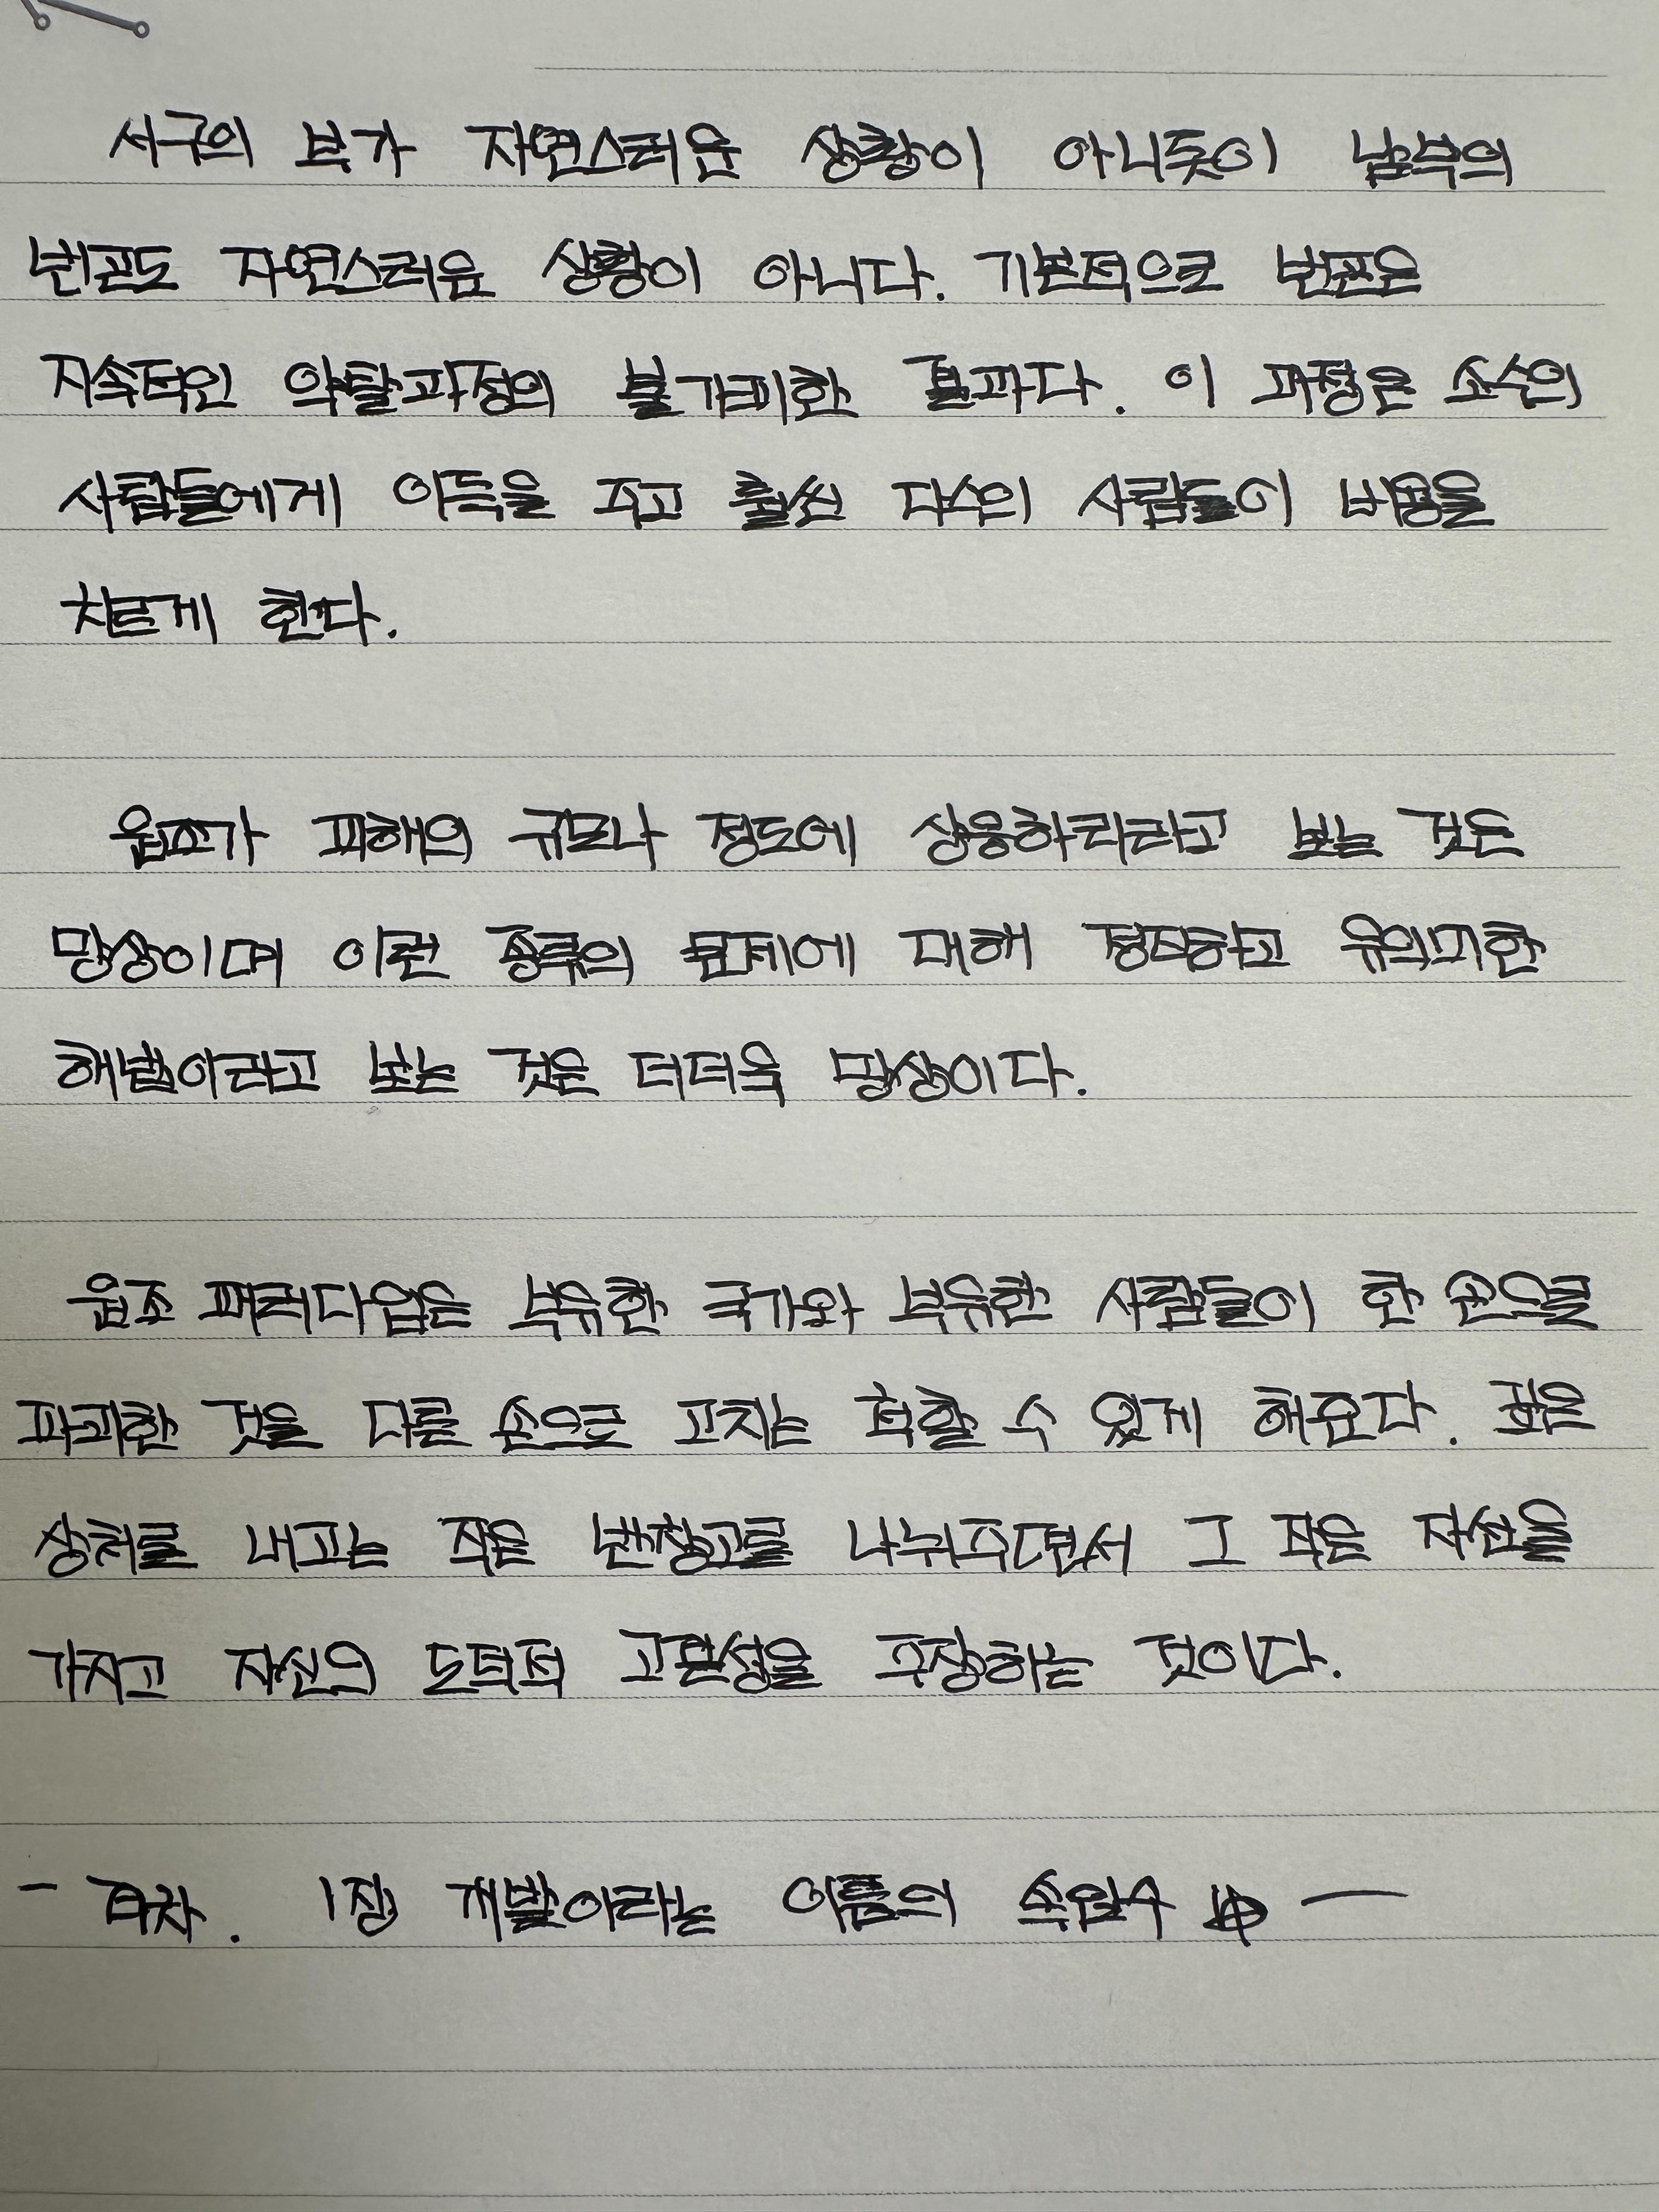 서구의 부가 자연스러운 상황이 아니듯이 남부의
빈곤도 자연스러운 상황이 아니다. 기본적으로 빈곤은
지속적인 약탈과정의 불가피한 결과다. 이 과정은 소수의
사람들에게 이득을 주고 훨씬 다수의 사람들이 비용을
치르게 한다.
원조가 피해의 규모나 정도에 상응하리라고 보는 것은
망상이며 이런 종류의 문제에 대해 정확하고 유의미한
해법이라고 보는 것은 더더욱 망상이다.
원조 패러다임은 부유한 국가와 부유한 사람들이 한 손으로
파괴한 것을 다른 손으로 고치는 척할 수 있게 해준다. 깊은
상처를 내고는 작은 반창고를 나눠주면서 그 작은 자선을
가지고 자신의 도덕적 고결성을 주장하는 것이다.
- 격차. 1장 개발이라는 이름의 속임수 中 -